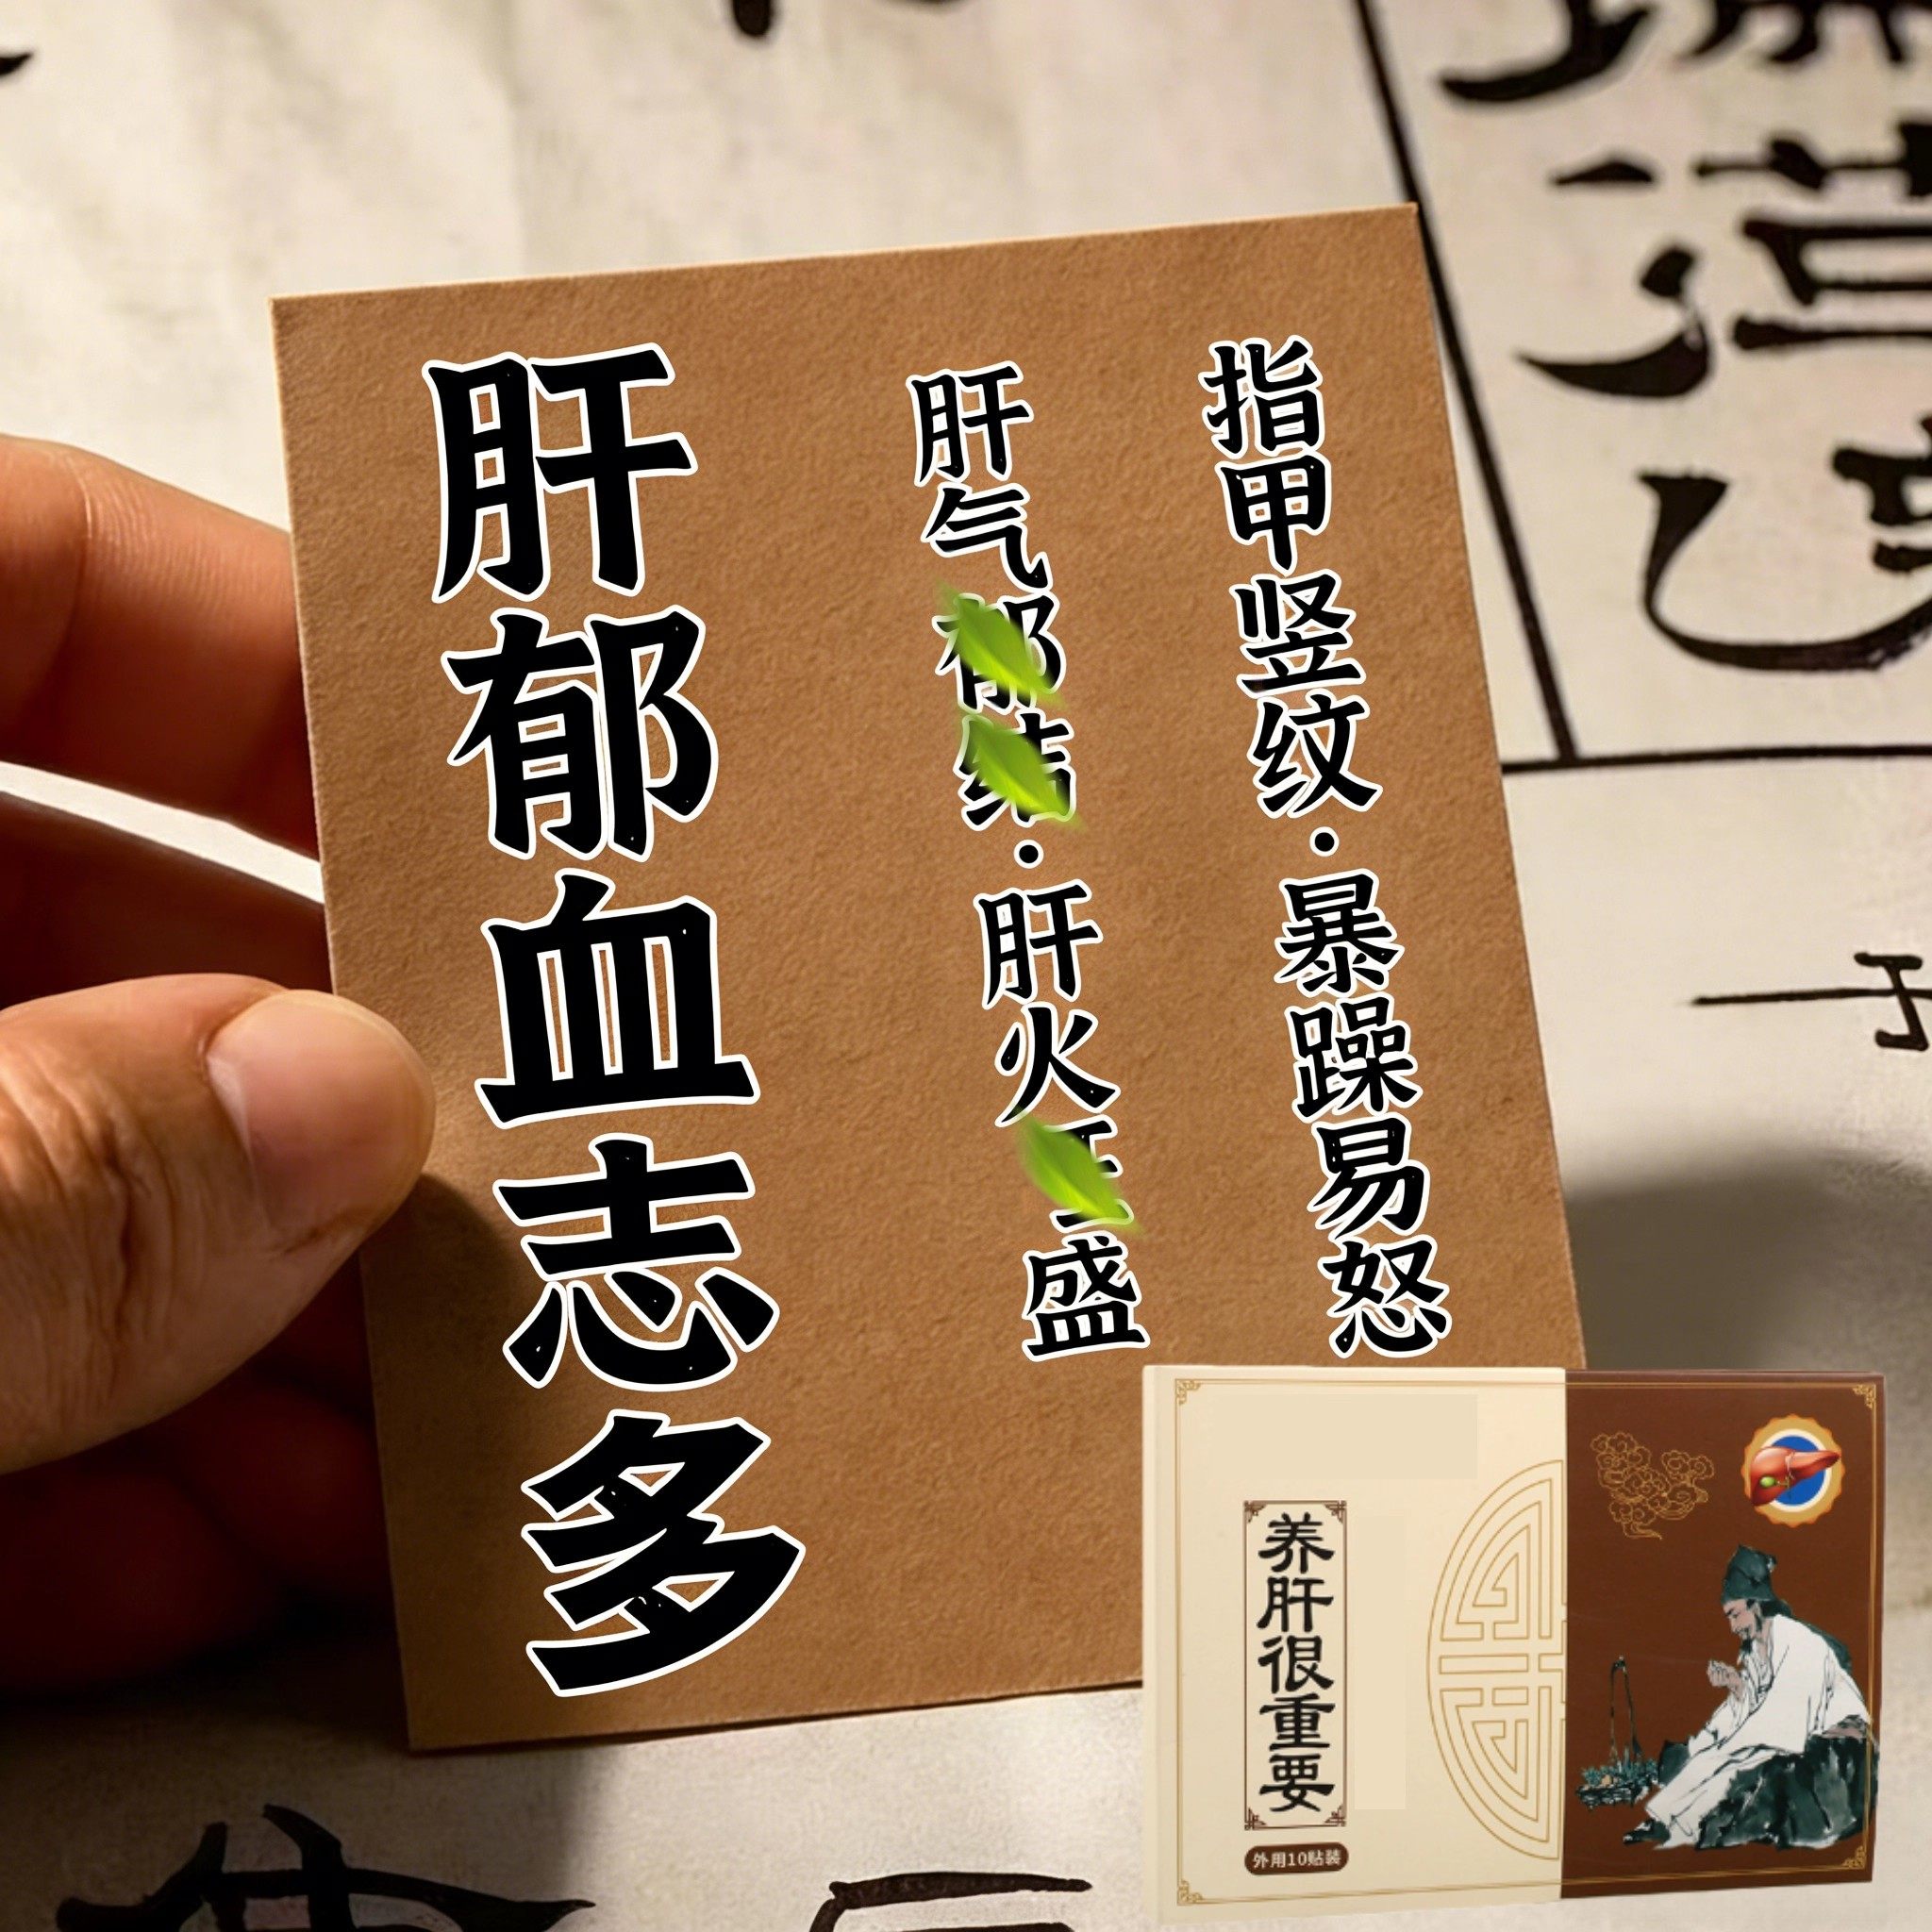 肝郁血志多
肝气郁结·肝火旺盛
指甲竖纹·暴躁易怒
养肝很重要
外用10贴装